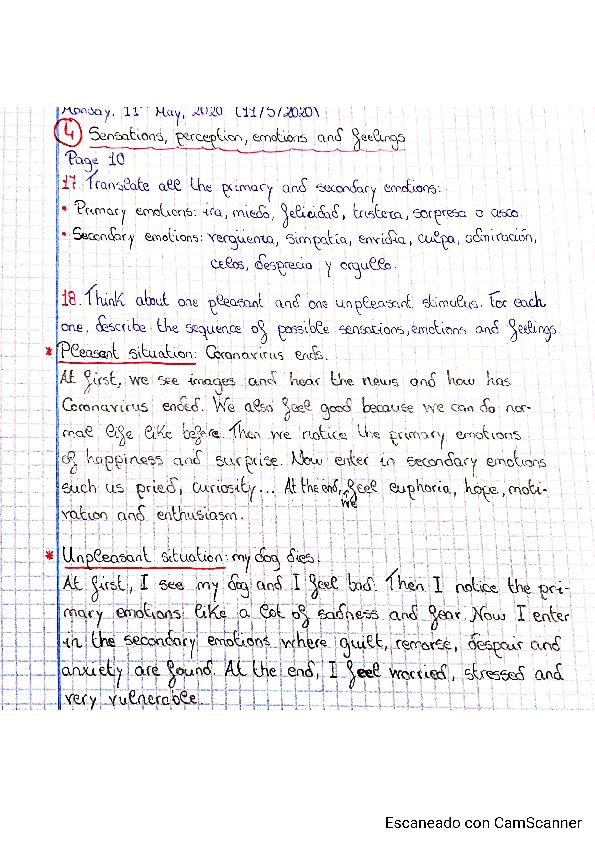 Monday, 11th May, 2020 (11/5/2020)
4 Sensations, perception, emotions and feelings
Page 10
17. Translate all the primary and secondary emotions:
• Primary emotions: ira, miedo, felicidad, tristeza, sorpresa o asco.
• Secondary emotions: vergüenza, simpatía, envidia, culpa, admiración,
celos, desprecio y orgullo.
18. Think about one pleasant and one unpleasant stimulus. For each
one, describe the sequence of possible sensations, emotions and feelings
* Pleasant situation: Coronavirus ends.
At first, we see images and hear the news and how has
Coronavirus ended. We also feel good because we can do nor-
mal life like before. Then we notice the primary emotions
of happiness and surprise. Now enter in secondary emotions
such us pried, curiosity... At the end, we feel euphoria, hope, moti-
vation and enthusiasm.
* Unpleasant situation: my dog dies.
At first, I see my dog and I feel bad. Then I notice the pri-
mary emotions like a lot of sadness and fear. Now I enter
in the secondary emotions where guilt, remorse, despair and
anxiety are found. At the end, I feel worried, stressed and
very vulnerable.
Escaneado con CamScanner